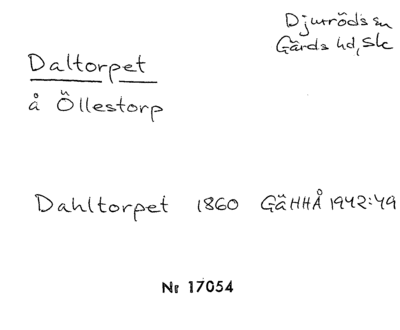 Djurröds sn
Gärds hd, Sk
Daltorpet
å Öllestorp
Dahltorpet 1860 GäHHÅ 1942:49
Nr 17054